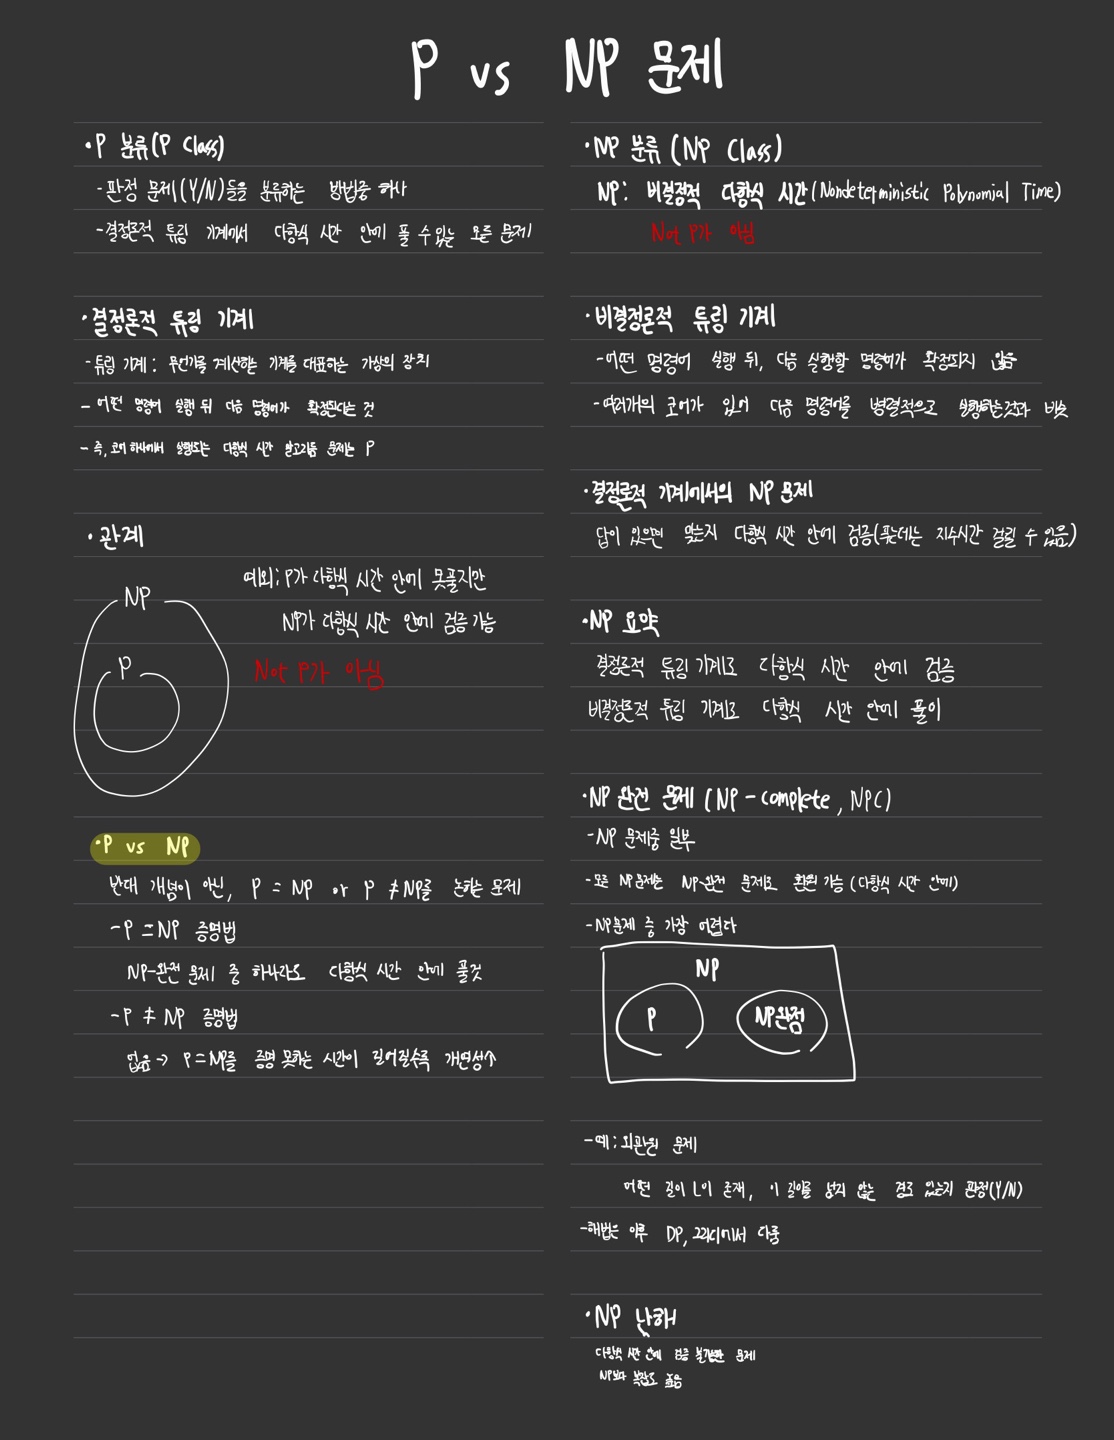 P vs NP 문제
·P 분류(P Class)
-판정 문제(Y/N)들을 분류하는 방법중 하나
-결정론적 튜링 기계에서 다항식 시간 안에 풀 수 있는 모든 문제
·결정론적 튜링 기계
-튜링 기계: 무언가를 계산하는 기계를 대표하는 가상의 장치
-어떤 명령어 실행 뒤 다음 명령어가 확정된다는 것
-즉, 코어 하나에서 실행되는 다항식 시간 알고리즘 문제는 P
·관계
NP
P
예외: P가 다항식 시간 안에 못풀지만
NP가 다항식 시간 안에 검증 가능
Not P가 아님
·P vs NP
반대 개념이 아닌, P = NP or P ≠ NP를 논하는 문제
-P = NP 증명법
NP-완전 문제 중 하나라도 다항식 시간 안에 풀것
-P ≠ NP 증명법
없음 → P = NP를 증명 못하는 시간이 길어질수록 개연성↑
·NP 분류 (NP Class)
NP: 비결정적 다항식 시간(Nondeterministic Polynomial Time)
Not P가 아님
·비결정론적 튜링 기계
-어떤 명령어 실행 뒤, 다음 실행할 명령어가 확정되지 않음
-여러개의 코어가 있어 다음 명령어를 병렬적으로 실행하는것과 비슷
·결정론적 기계에서의 NP 문제
답이 있으면 맞는지 다항식 시간 안에 검증(푸는데는 지수시간 걸릴 수 있음)
·NP 요약
결정론적 튜링 기계로 다항식 시간 안에 검증
비결정론적 튜링 기계로 다항식 시간 안에 풀이
·NP 완전 문제 (NP-complete, NPC)
-NP 문제중 일부
-모든 NP문제는 NP-완전 문제로 환원 가능 (다항식 시간 안에)
-NP문제 중 가장 어렵다
NP
P
NP완전
-예: 외판원 문제
어떤 길이 L이 존재, 이 길이를 넘지 않는 경로 있는지 판정(Y/N)
-해법은 이후 DP, 그리디에서 다룸
·NP 난해
다항식 시간 안에 검증 불가능한 문제
NP보다 복잡도 높음